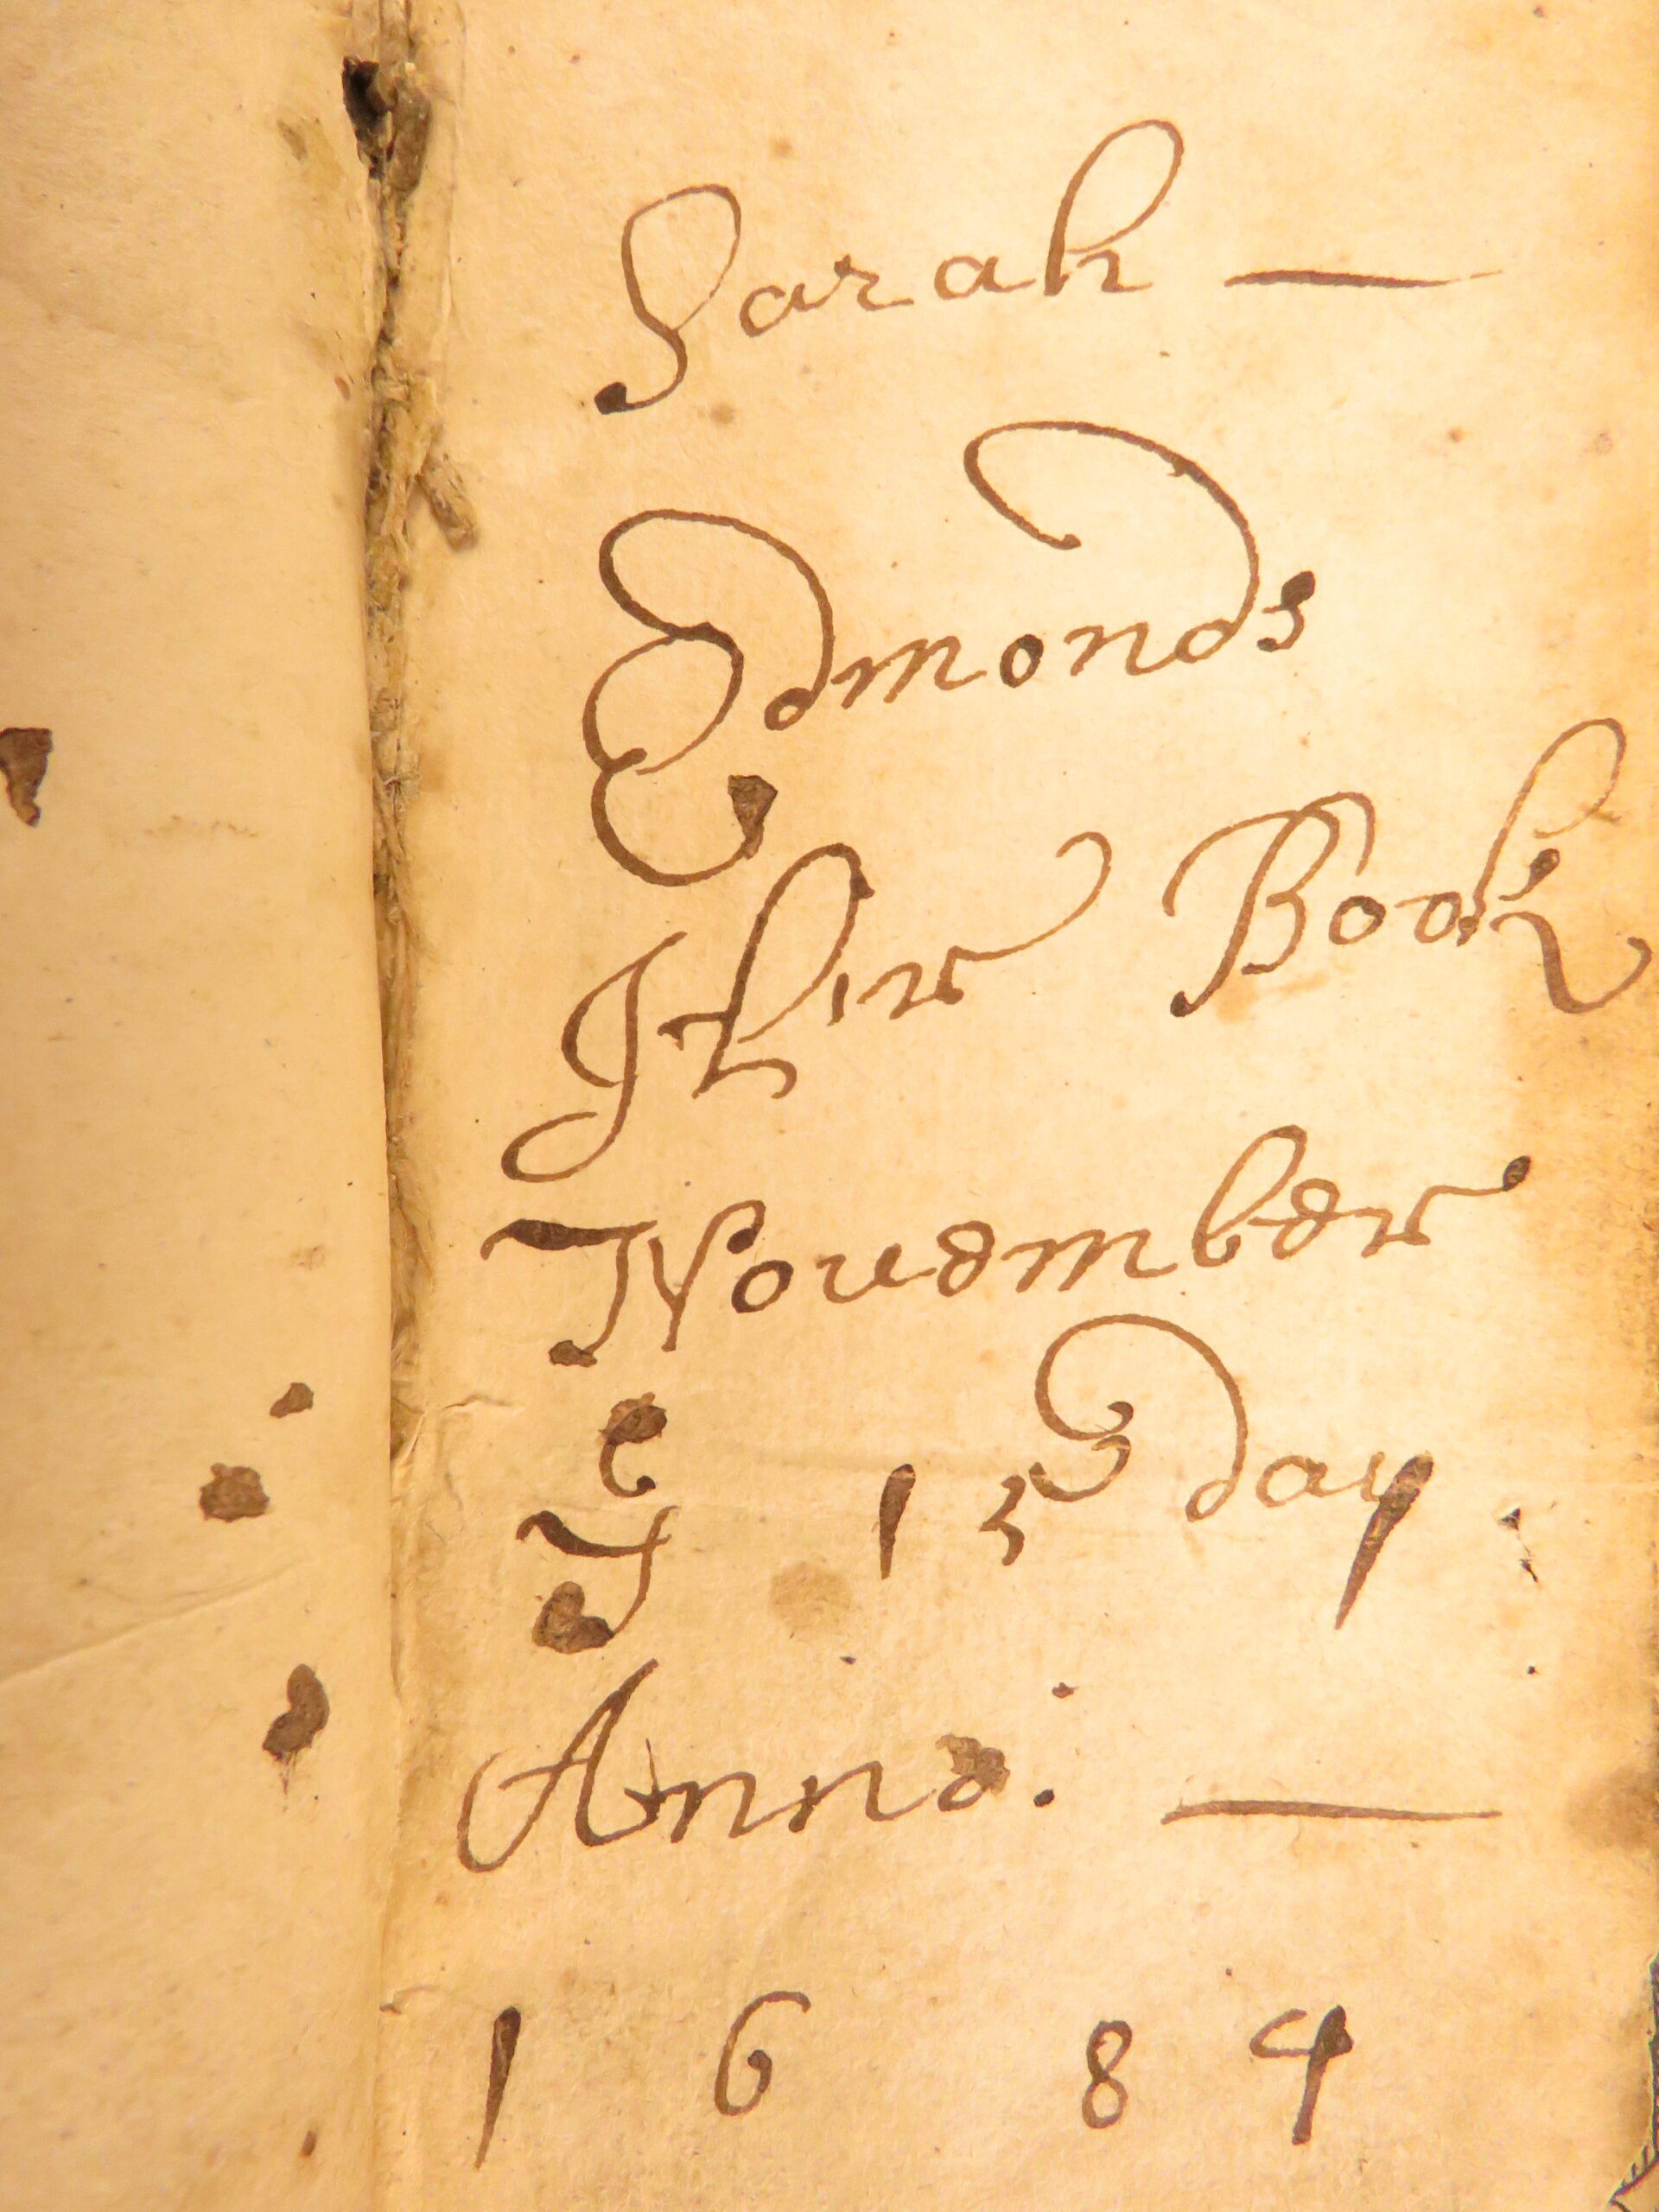 Sarah —
Edmonds
Hir Book
Nouember
yᵉ 15 day
Anno: —
1684